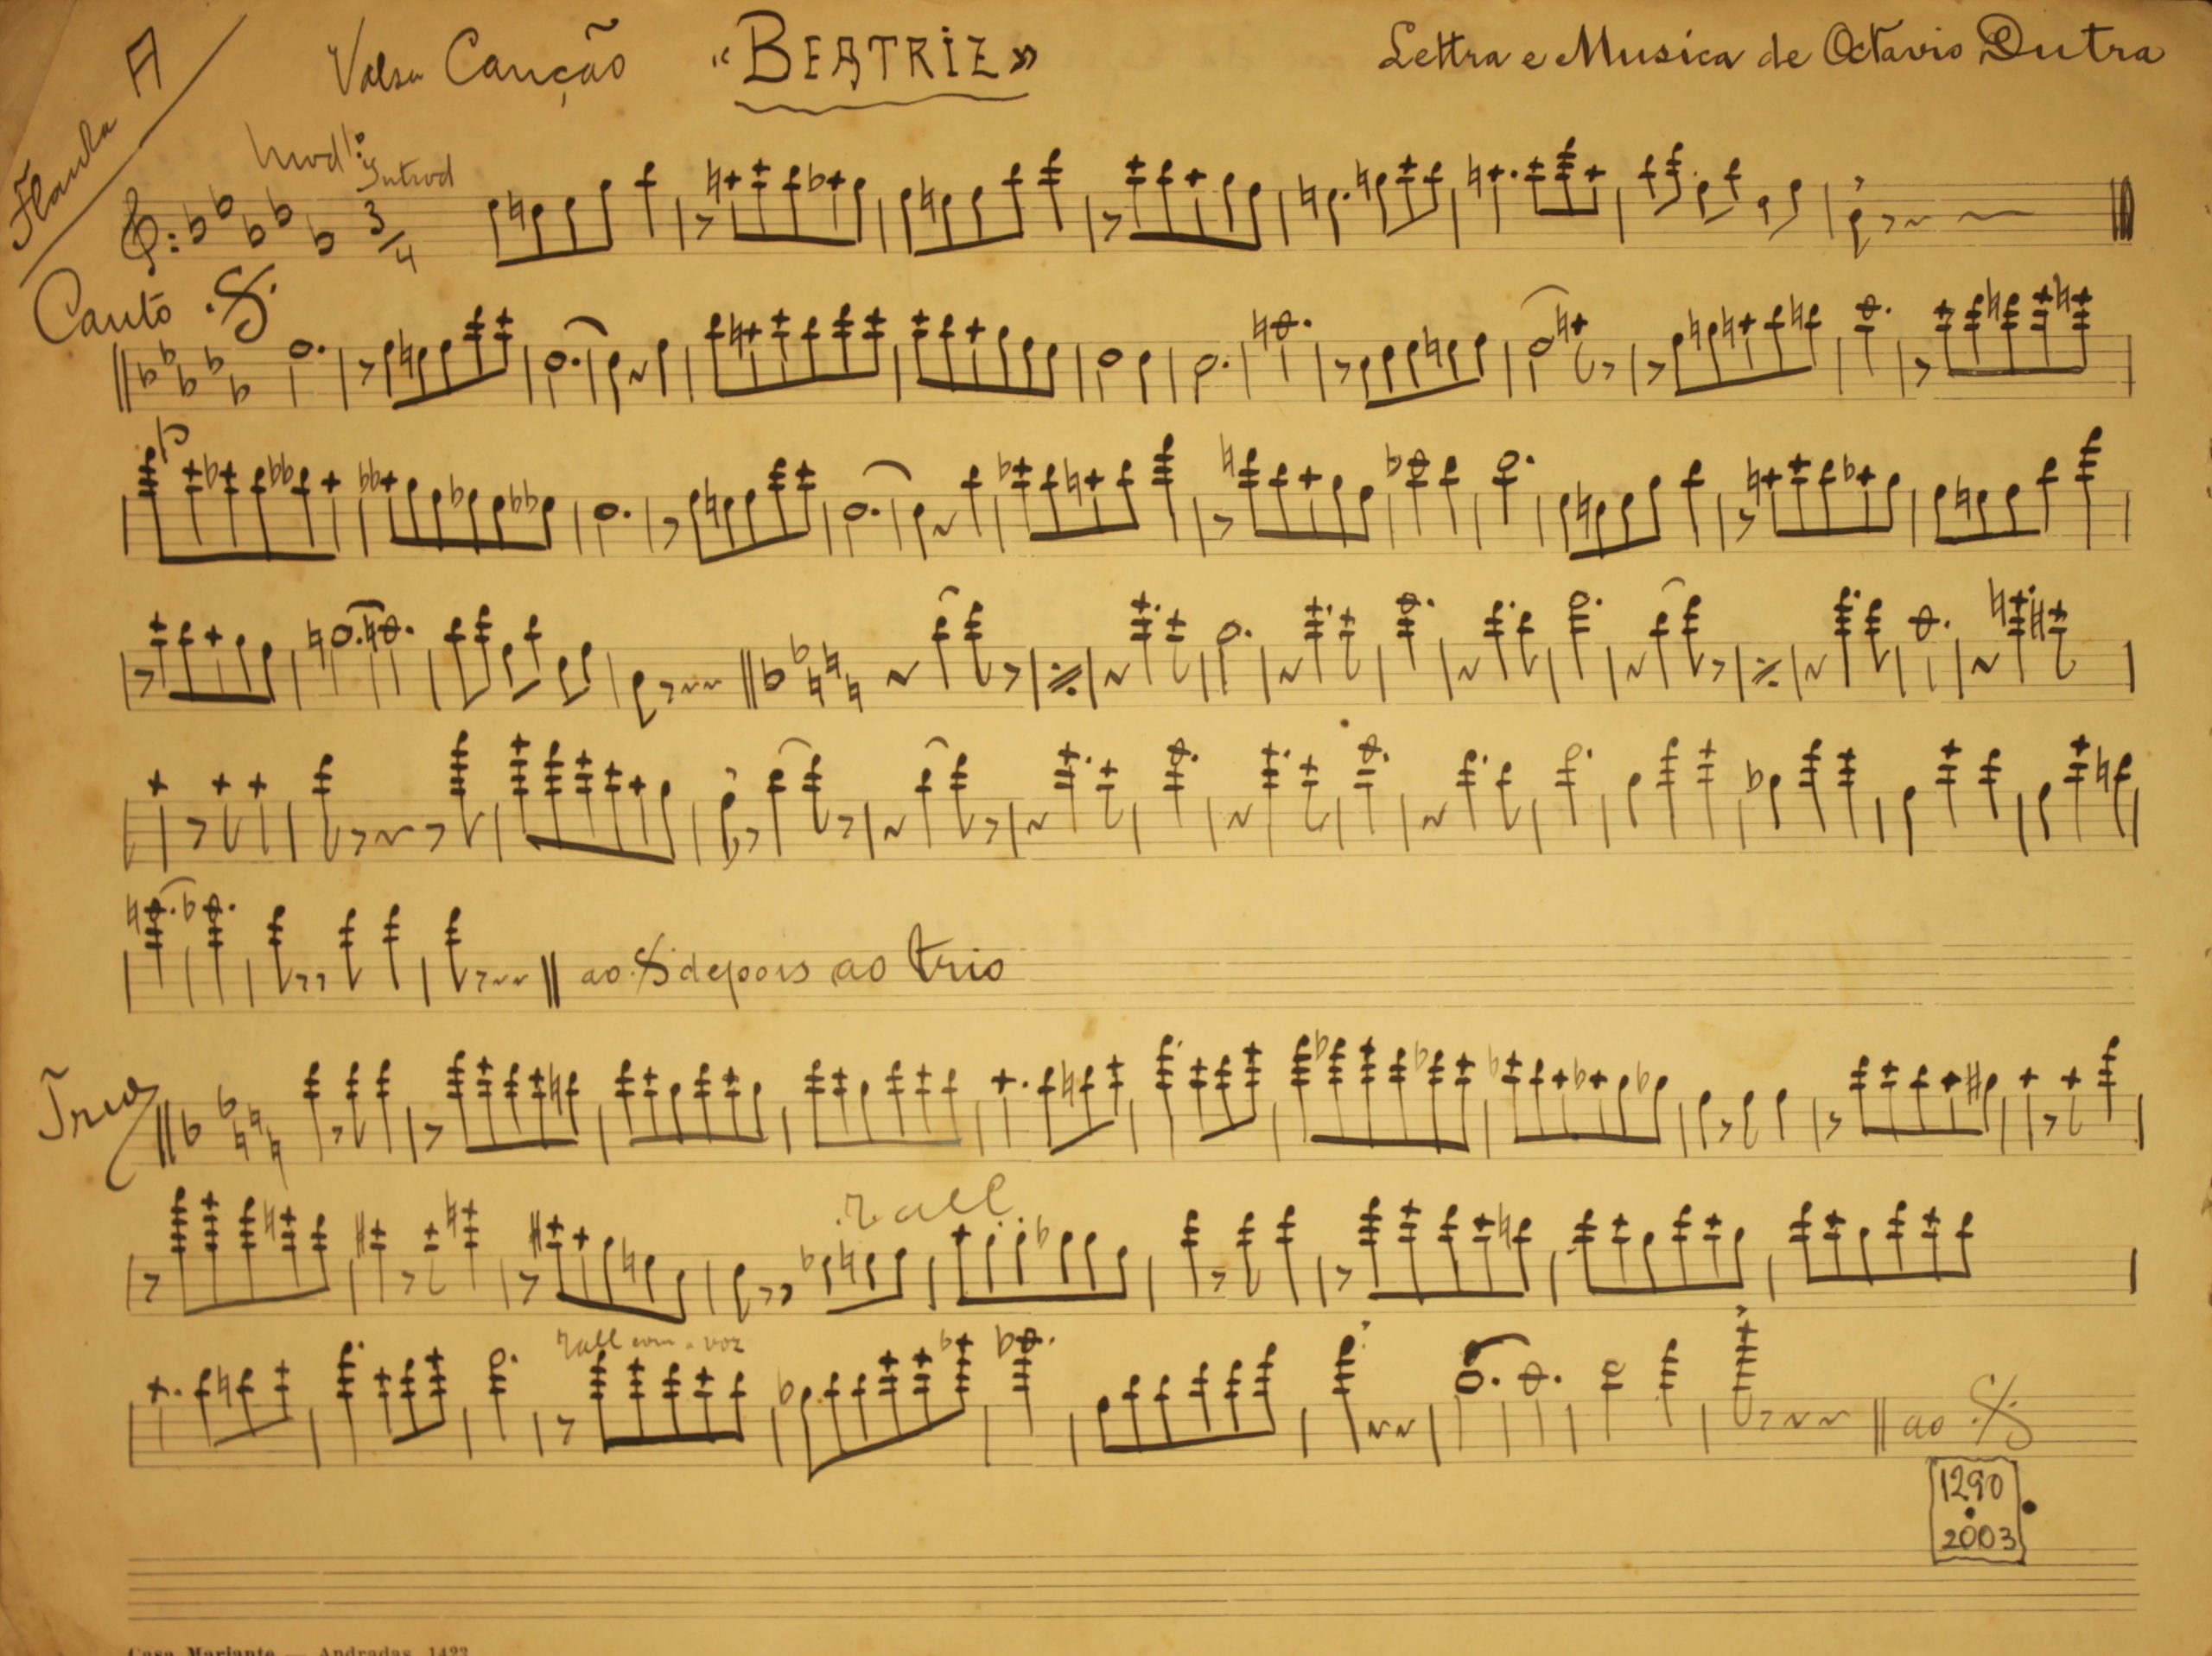 Flauta A
Valsa Canção «BEATRIZ» Lettra e Musica de Octavio Dutra
Modº: Introd
3/4
Canto
ao depois ao trio
Trio
rall
rall com a voz
ao
1290
2003
Casa Mariante — Andradas, 1423